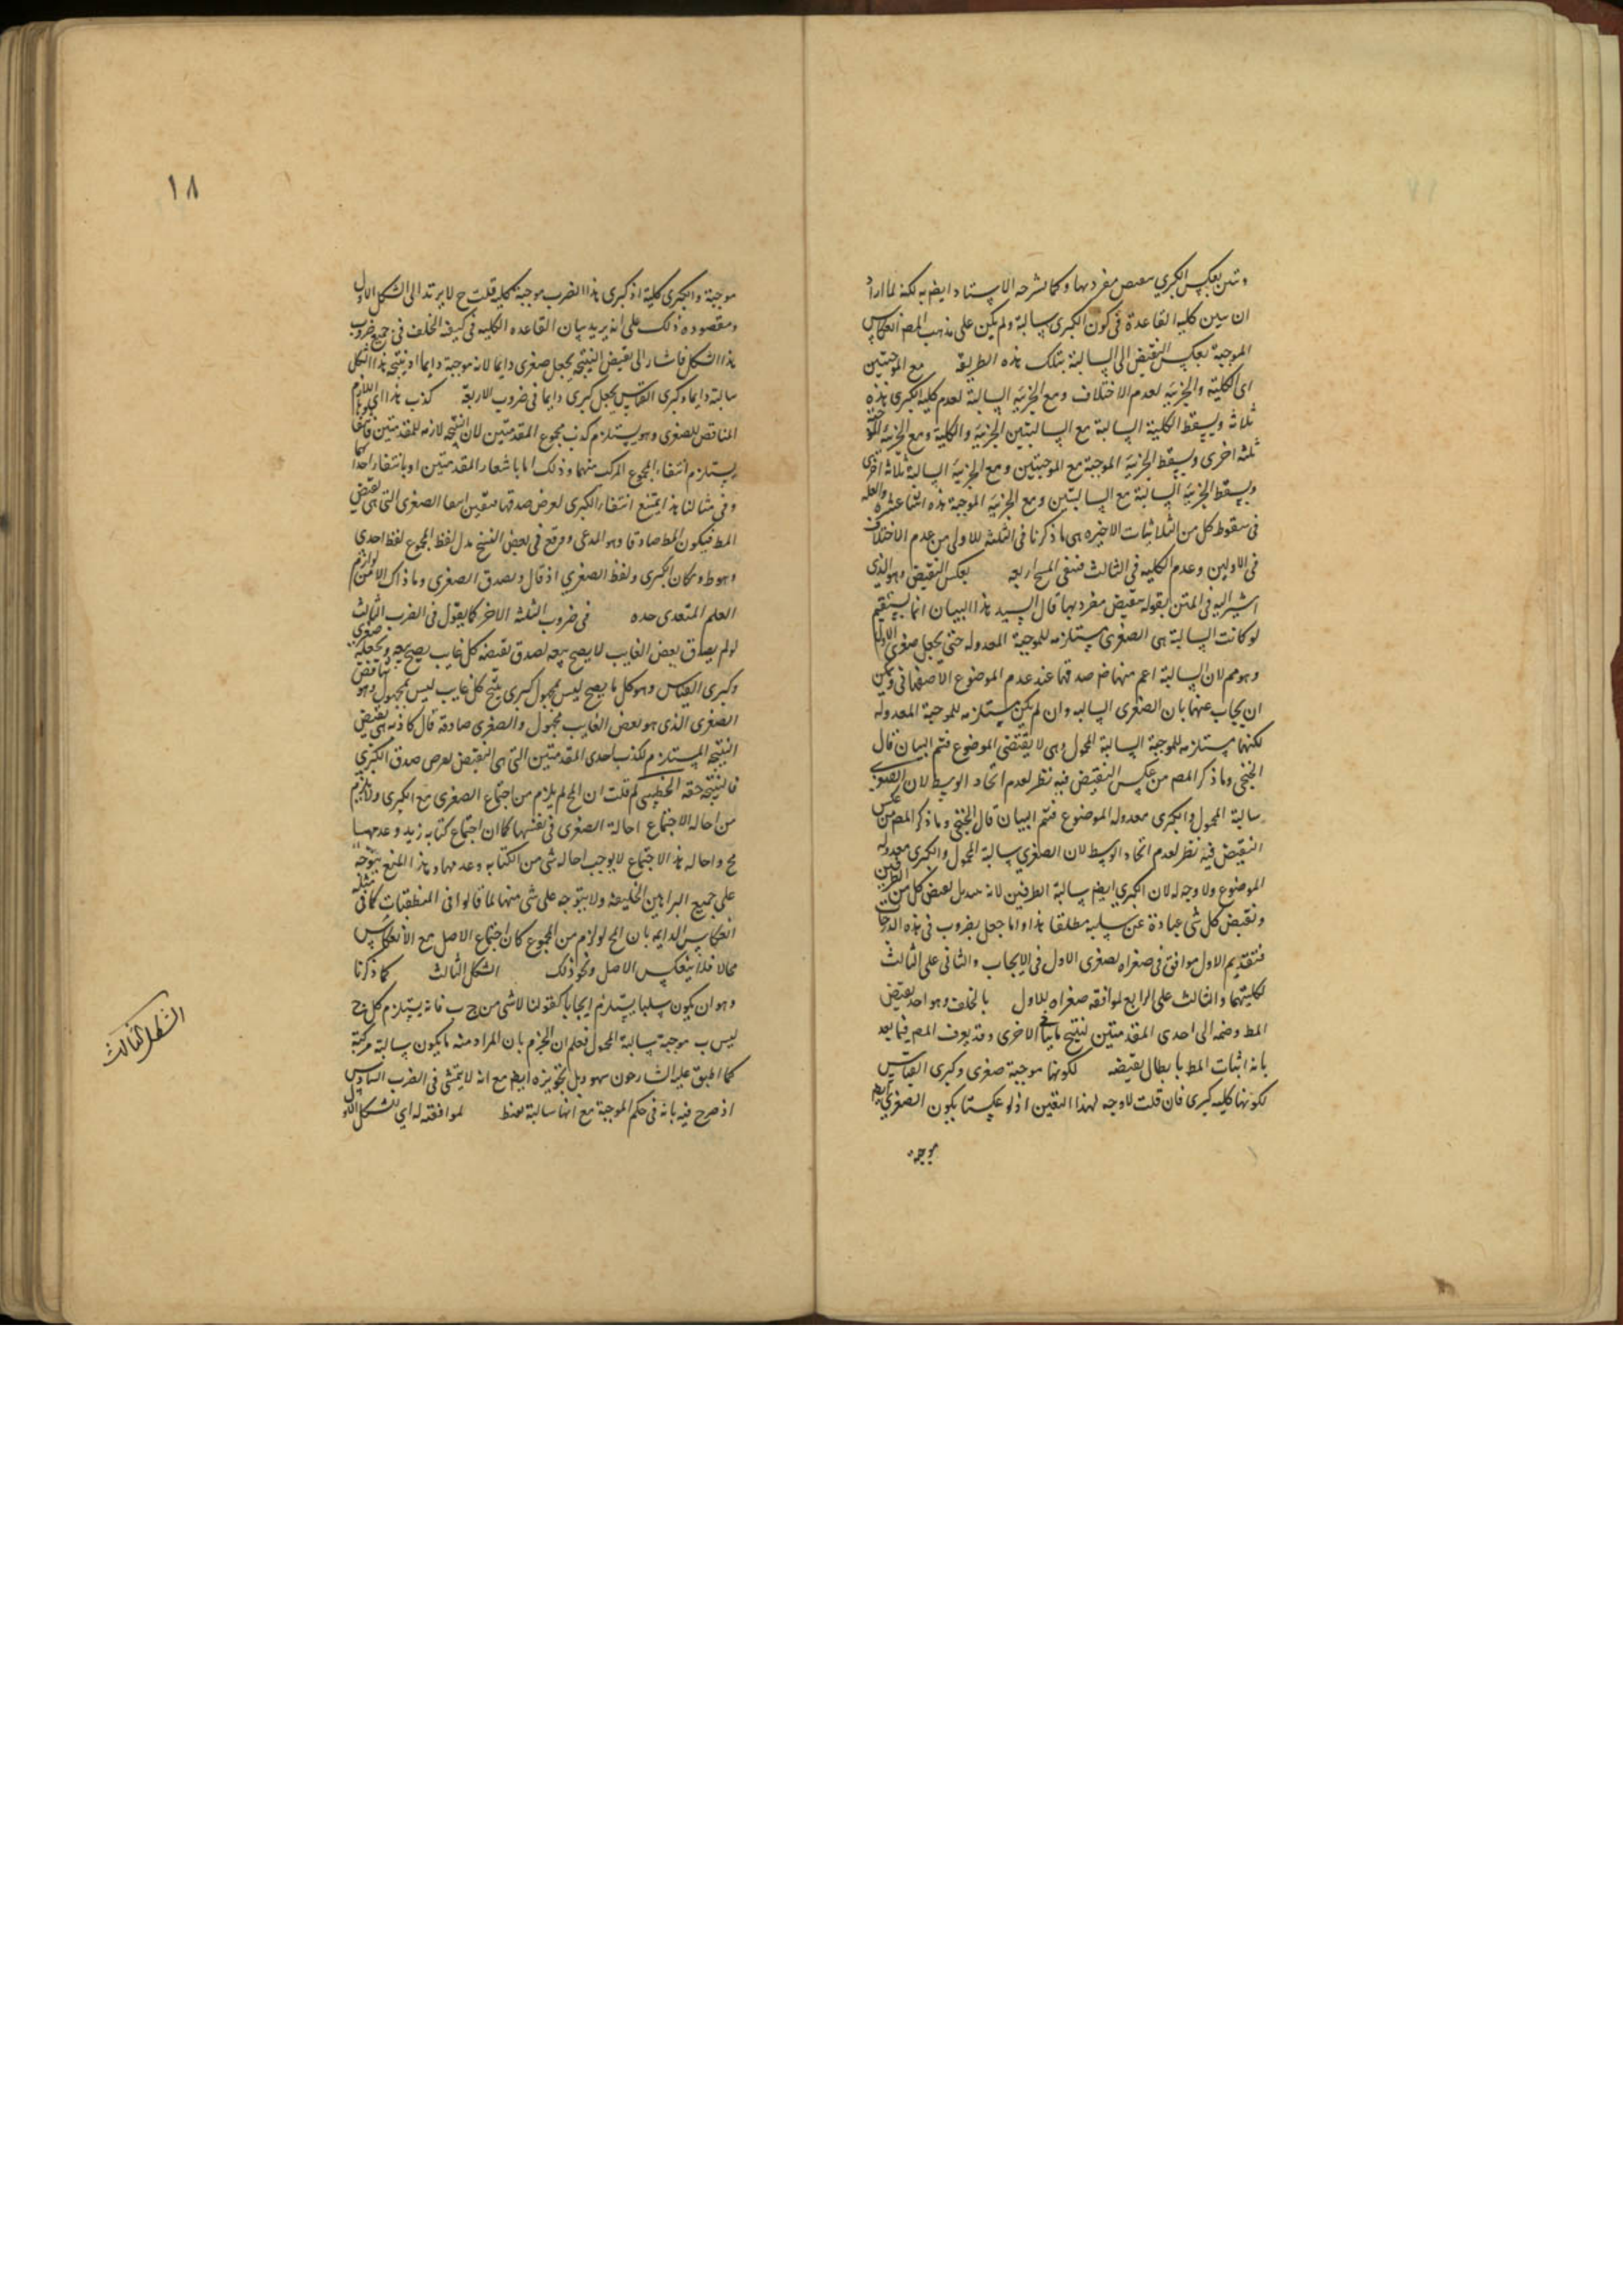 وتبين بعكس الكبرى بنقيض مفرديها وكما شرحه الاستاد ايضا به لكنه لما اراد
ان يبين كلية القاعدة فى كون الكبرى سالبة ولم يكن على مذهب المص انعكاس
الموجبة بعكس النقيض الى السالبة بتلك هذه الطريقة مع الموجبتين
اى الكلية والجزئية لعدم الاختلاف ومع الجزئية السالبة لعدم كلية الكبرى هذه
ثلاثة ويسقط الكلية السالبة مع السالبتين الجزئية والكلية ومع الجزئية
ثلثة اخرى ويسقط الجزئية الموجبة مع الموجبتين ومع الجزئية السالبة ثلاثة اخرى
ويسقط الجزئية السالبة مع السالبتين ومع الجزئية الموجبة هذه اثنا عشرة والعلة
فى سقوط كل من الثلاثيات الاخيرة هى ما ذكرنا فى الثلثة الاولى من عدم الاختلاف
فى الاولين وعدم الكلية فى الثالث فبقى اربعة بعكس النقيض وهو الذى
اشير اليه فى المتن بقوله بنقيض مفرديها قال السيد هذا البيان انما يستقيم
لو كانت السالبة هى الصغرى مستلزمه للموجبة المعدولة حتى يجعل صغرى الاول
وهو مم لان السالبة اعم منها ضر صدقها عند عدم الموضوع الاصفهانى ويمكن
ان يجاب عنها بان الصغرى السالبه وان لم يكن مستلزمه للموجبة المعدوله
لكنها مستلزمه للموجبة السالبة المحمول وهى لا يقتضى الموضوع فتم البيان قال
الخنجى وما ذكر المص من عكس النقيض فيه نظر لعدم اتحاد الوسط لان الصغرى
سالبة المحمول والكبرى معدوله الموضوع فتم البيان قال الخنجى وما ذكر المص من عكس
النقيض فيه نظر لعدم اتحاد الوسط لان الصغرى سالبة المحمول والكبرى معدولة
الموضوع ولا وجه له لان الكبرى ايضا سالبة الطرفين لانه تبديل نقيض كل من الطرفين
ونقيض كل شى عبارة عن سلبه مطلقا هذا واما جعل ضروب فى هذه الدرجات
فتقديم الاول موافق فى صغراه لصغرى الاول فى الايجاب والثانى على الثالث
لكليتهما والثالث على الرابع لموافقه صغراه للاول بالخلف وهو اخذ نقيض
المط وضمه الى احدى المقدمتين لينتج ما ينافى الاخرى وقد يعرف المص فيما بعد
بانه اثبات المط بابطال نقيضه لكونها موجبة صغرى وكبرى القياس
لكونها كليه كبرى فان قلت لا وجه لهذا التعيين اذ لو عكست يكون الصغرى ايضا
موجبة
١٨
موجبة والكبرى كلية اذ كبرى هذا الضرب موجبة كلية قلت ح لا يرتد الى الشكل الاول
ومقصوده ذلك على انه يريد بيان القاعده الكليه فى كيفية الخلف فى جميع ضروب
هذا الشكل فاشار الى نقيض النتيجة يجعل صغرى دايما لانه موجبة دايما اذ نتيجة هذا الشكل
سالبة دايما وكبرى القياس يجعل كبرى دايما فى ضروب الاربعة كذب هذا اى اللازم
المناقض للصغرى وهو يستلزم كذب مجموع المقدمتين لان النتيجة لازمه للمقدمتين
يستلزم انتفاء المجموع المركب منهما وذلك اما بانتفاء المقدمتين او بانتفاء احداهما
وفى مثالنا هذا يمتنع انتفاء الكبرى لفرض صدقها فتعين انتفاء الصغرى التى هى نقيض
المط فيكون المط صادقا وهو المدعى ووقع فى بعض النسخ بدل لفظ المجموع لفظ احدى
وهو ط ومكان الكبرى ولفظ الصغرى اذ قال وبصدق الصغرى وما ذاك الا من لوازم
العلم المتعدى حده فى ضروب الثلثة الاخر كما يقول فى الضرب الثالث
لو لم يصدق بعض الغايب لا يصح بيعه لصدق نقيضه كل غايب يصح بيعه ونجعله صغرى
وكبرى القياس وهو كل ما يصح ليس بمجهول كبرى ينتج كل غايب ليس بمجهول وهو يناقض
الصغرى الذى هو بعض الغايب مجهول والصغرى صادقة قال كاذبة هى نقيض
النتيجة المستلزم لكذب احدى المقدمتين التى هى النقيض لفرض صدق الكبرى
فالنتيجة حقة الخطيبى لم قلت ان المح لم يلزم من اجتماع الصغرى مع الكبرى ولا يلزم
من احاله الاجتماع احالة الصغرى فى نفسها كما ان اجتماع كتابه زيد وعدمها
مح واحاله هذا الاجتماع لا يوجب احاله شى من الكتابه وعدمها وهذا المنع يتوجه
على جميع البراهين الخلفية ولا يتوجه على شى منها لما قالوا فى المنطقيات كما فى مثله
انعكاس الدايمه بان المح لو لزم من المجموع كان اجتماع الاصل مع الانعكاس
محالا فلا ينعكس الاصل ونحو ذلك الشكل الثالث كما ذكرنا
وهو ان يكون سلبا يستلزم ايجابا كقولنا لا شى من ج ب فانه يستلزم كل ج
ليس ب موجبة سالبة المحمول فعلم ان الجزم بان المراد منه ما يكون سالبة مركبة
كما اطبق عليه الشارحون سهو وبل تجويزه ايضا مع انه لا يتمشى فى الضرب السادس
اذ صرح فيه بانه فى حكم الموجبة مع انها سالبة فقط لموافقته له اى للشكل الاول
الشكل الثالث